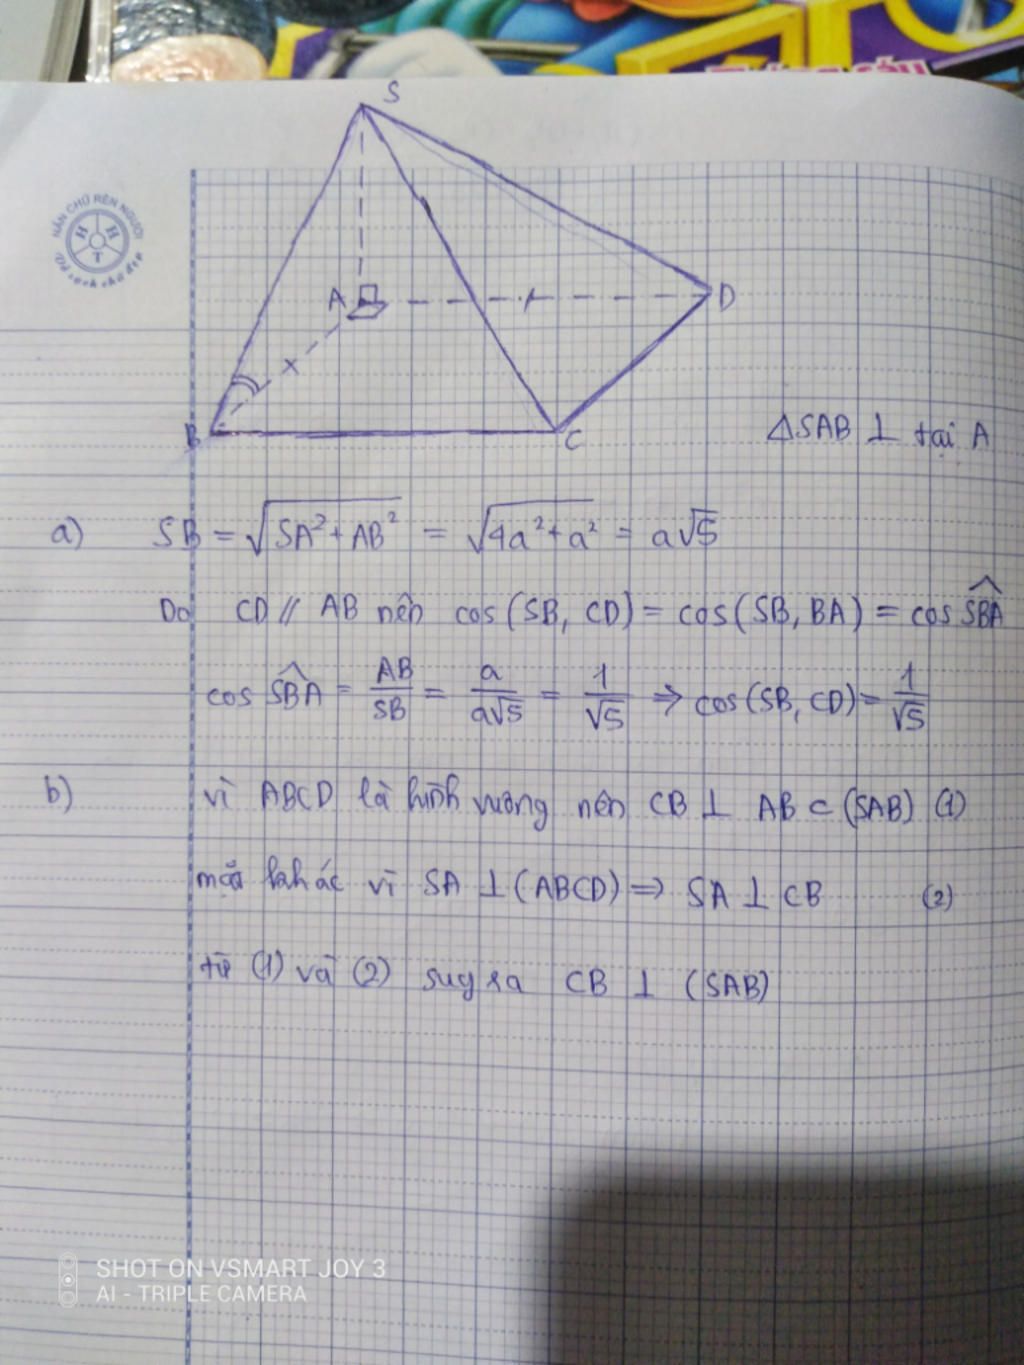 S
A
D
B
C
NẮN CHỮ RÈN NGƯỜI
H H
T
ΔSAB ⊥ tại A
a) SB = √(SA² + AB²) = √(4a² + a²) = a√5
Do CD // AB nên cos(SB, CD) = cos(SB, BA) = cos SBÂ
cos SBÂ = AB/SB = a/a√5 = 1/√5 ⇒ cos(SB, CD) = 1/√5
b) vì ABCD là hình vuông nên CB ⊥ AB ⊂ (SAB) (1)
mặt khác vì SA ⊥ (ABCD) ⇒ SA ⊥ CB (2)
từ (1) và (2) suy ra CB ⊥ (SAB)
SHOT ON VSMART JOY 3
AI - TRIPLE CAMERA